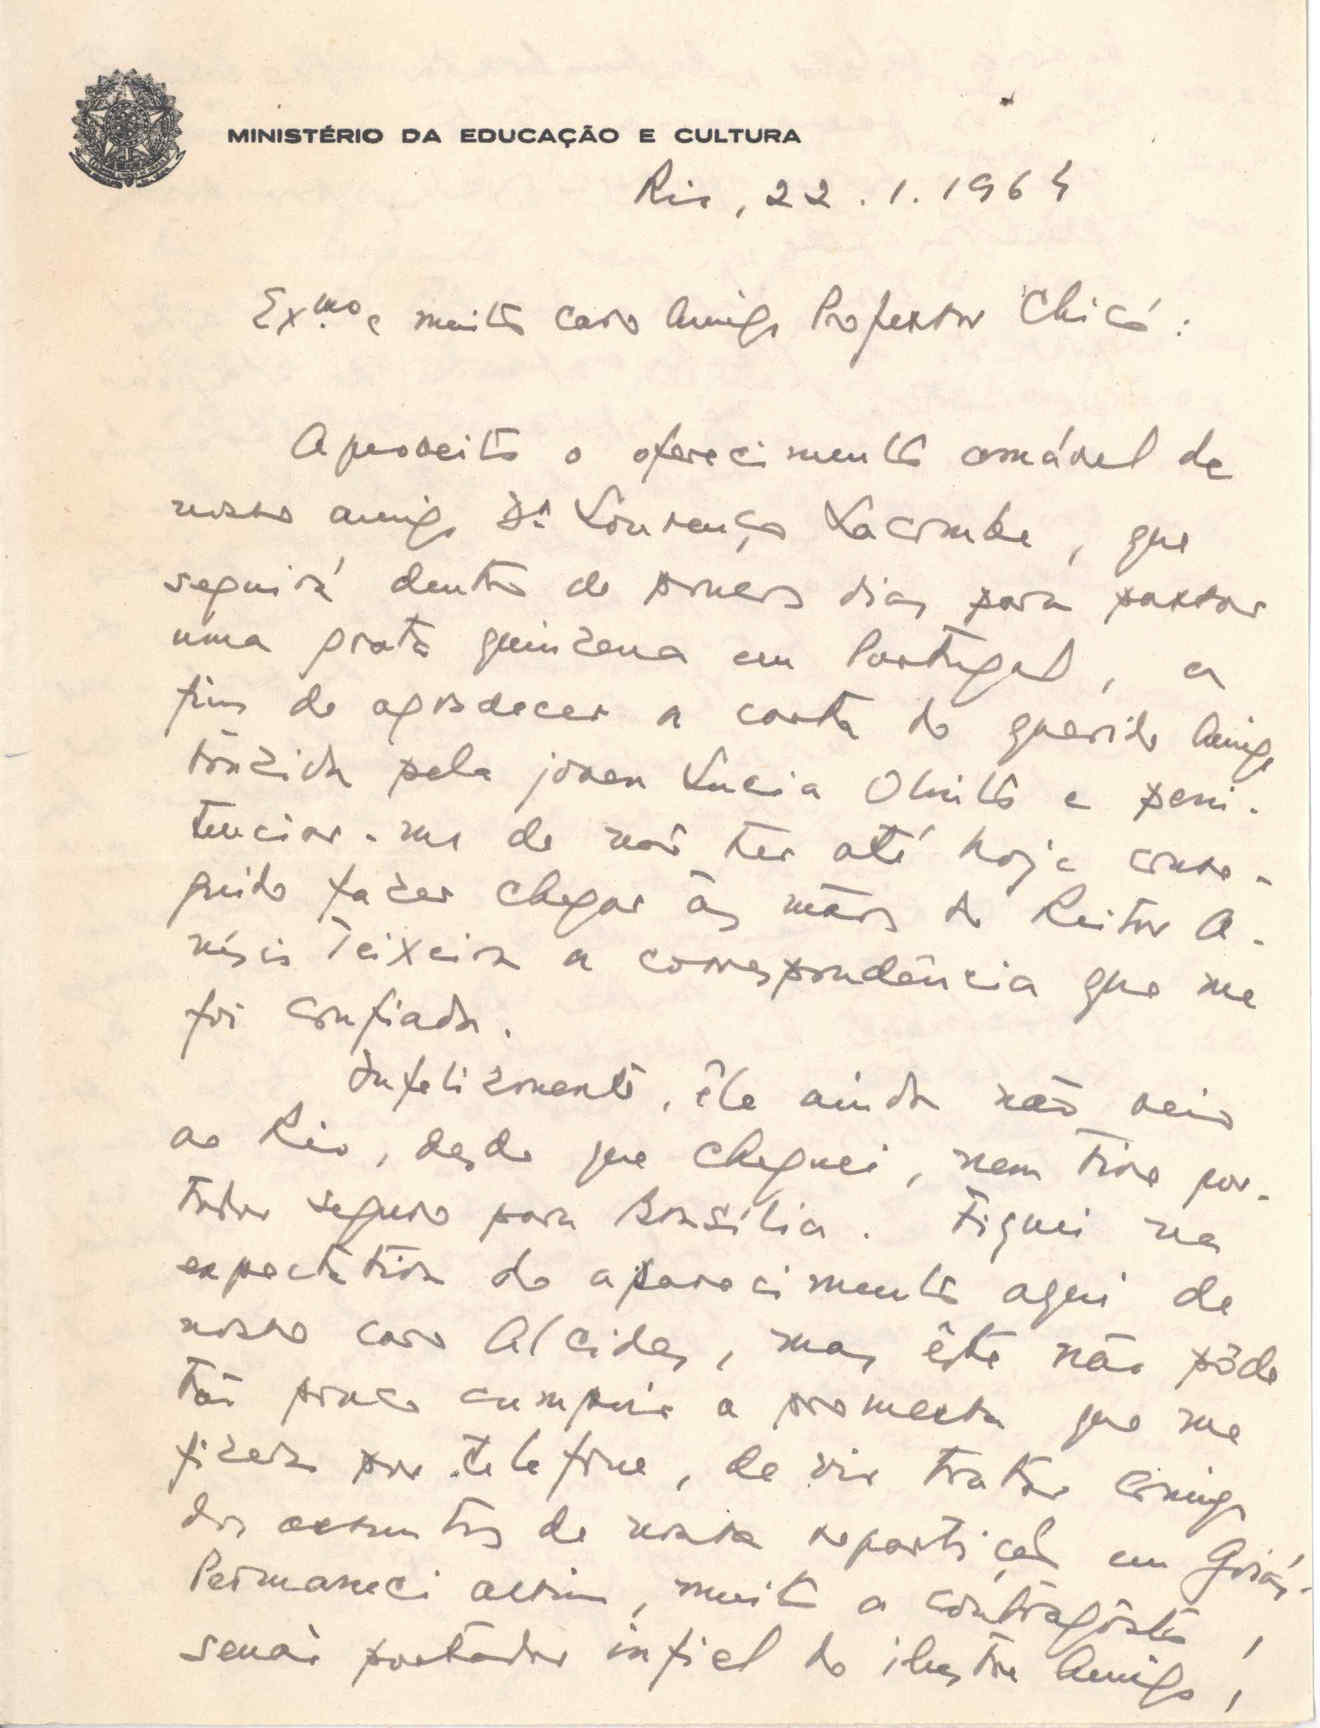 MINISTÉRIO DA EDUCAÇÃO E CULTURA
Rio, 22.1.1964
Exmo e muito caro Amigo Professor Chicó:
Aproveito o oferecimento amável de
nosso amigo Dr. Lourenço Lacombe, que
seguirá dentro de poucos dias para passar
uma grata quinzena em Portugal, a
fim de agradecer a carta do querido Amigo
trazida pela jovem Lucia Olinto e peni-
tenciar-me de não ter até hoje conse-
guido fazer chegar às mãos do Reitor A-
nísio Teixeira a correspondência que me
foi confiada.
Infelizmente, êle ainda não veio
ao Rio, desde que cheguei, nem tive por-
tador seguro para Brasília. Fiquei na
expectativa do aparecimento aqui de
nosso caro Alcides, mas êste não pôde
tão pouco cumprir a promessa que me
fizera por telefone, de vir tratar comigo
dos assuntos de nossa repartição em Goiás.
Permaneci assim, muito a contragôsto,
senão portador infiel do ilustre Amigo,